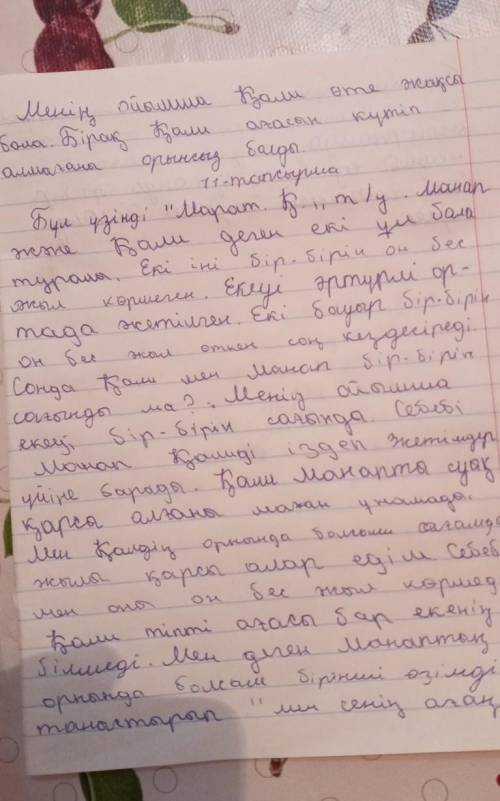 Менің ойымша Қали өте жақсы
бала. Бірақ Қали ағасын күтіп
алмағаны орынсыз балды.
11-тапсырма
Бұл үзінді "Марат. Қ,, т/у. Манап
және Қали деген екі ұл бала
туралы. Екі іні бір-бірін он бес
жыл көрмеген. Екеуі әртүрлі ор-
тада жетілген. Екі бауыр бір-бірін
он бес жыл өткен соң кездесіреді.
Сонда Қали мен Манап бір-бірін
сағынды ма?. Менің ойымша
екеуі бір-бірін сағынды. Себебі
Манап Қалиді іздеп жетімдер
үйіне барады. Қали Манапты суық
қарсы алғаны маған ұнамады.
Мен Қалдің орнында болсам ағамды
жылы қарсы алар едім Себеб
мен оны он бес жыл көрмед
Қали тіпті ағасы бар екенің
білмеді. Мен деген Манаптың
орнында болсам бірінші өзімді
таныстырып "мен сенің ағаң